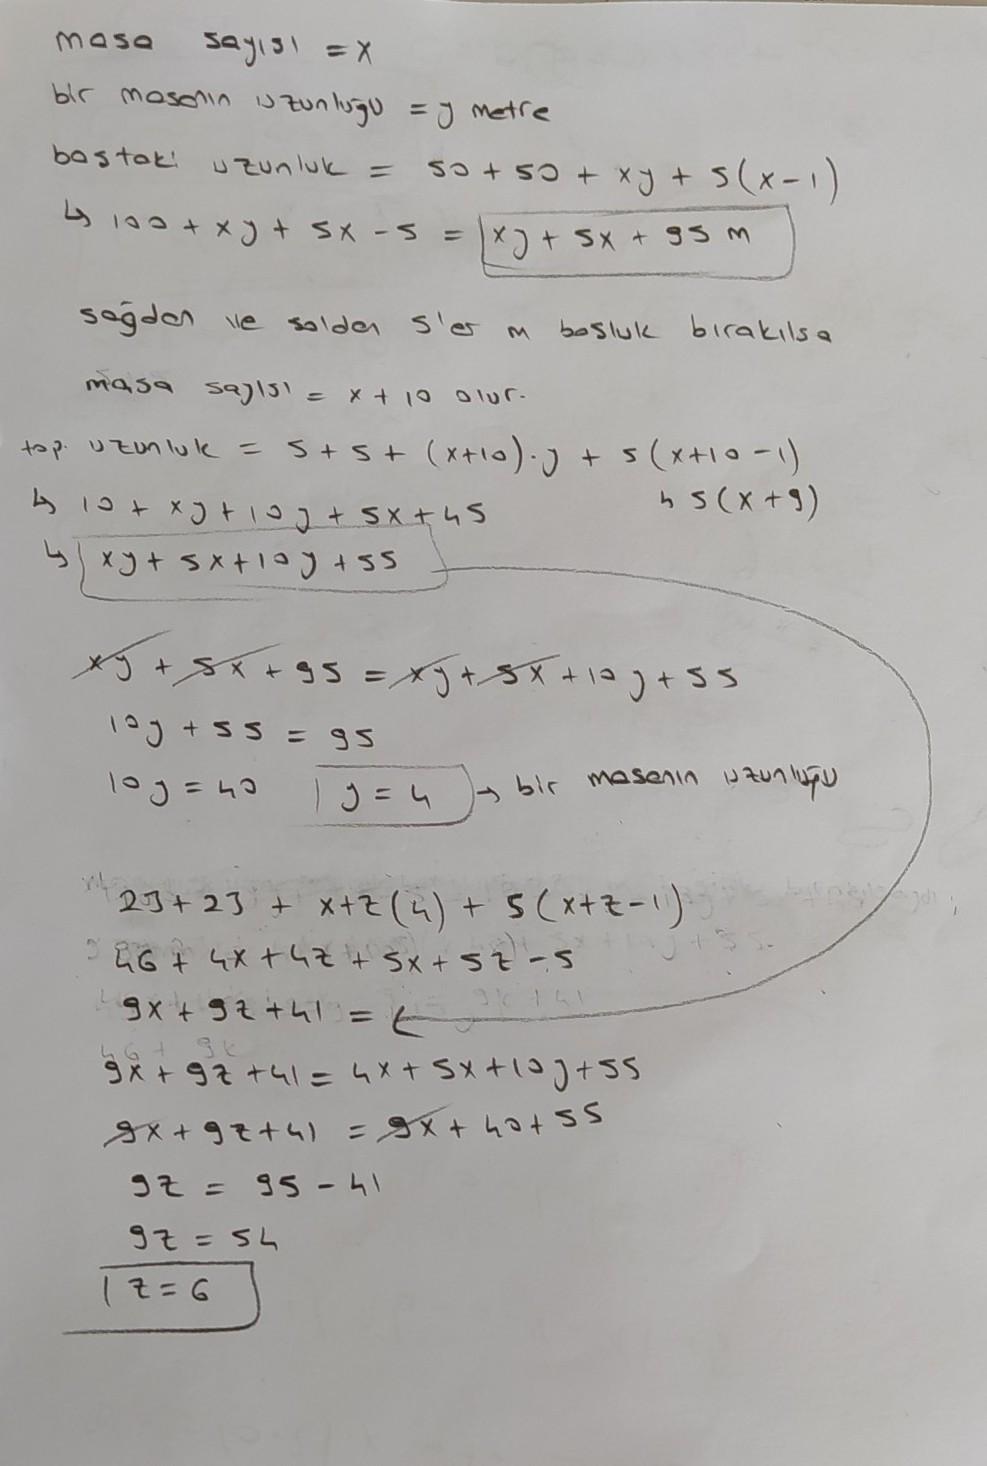 masa sayısı = x
bir masanın uzunluğu = y metre
baştaki uzunluk = 50 + 50 + xy + 5(x-1)
↳ 100 + xy + 5x - 5 = xy + 5x + 95 m
sağdan ve soldan 5'er m boşluk bırakılsa
masa sayısı = x + 10 olur.
top. uzunluk = 5 + 5 + (x+10).y + 5(x+10-1)
↳ 10 + xy + 10y + 5x + 45 ↳ 5(x+9)
↳ xy + 5x + 10y + 55
xy + 5x + 95 = xy + 5x + 10y + 55
10y + 55 = 95
10y = 40 y = 4 → bir masanın uzunluğu
23 + 23 + x+z(4) + 5(x+z-1)
46 + 4x + 4z + 5x + 5z - 5
9x + 9z + 41 = ←
9x + 9z + 41 = 4x + 5x + 10y + 55
9x + 9z + 41 = 9x + 40 + 55
9z = 95 - 41
9z = 54
z = 6